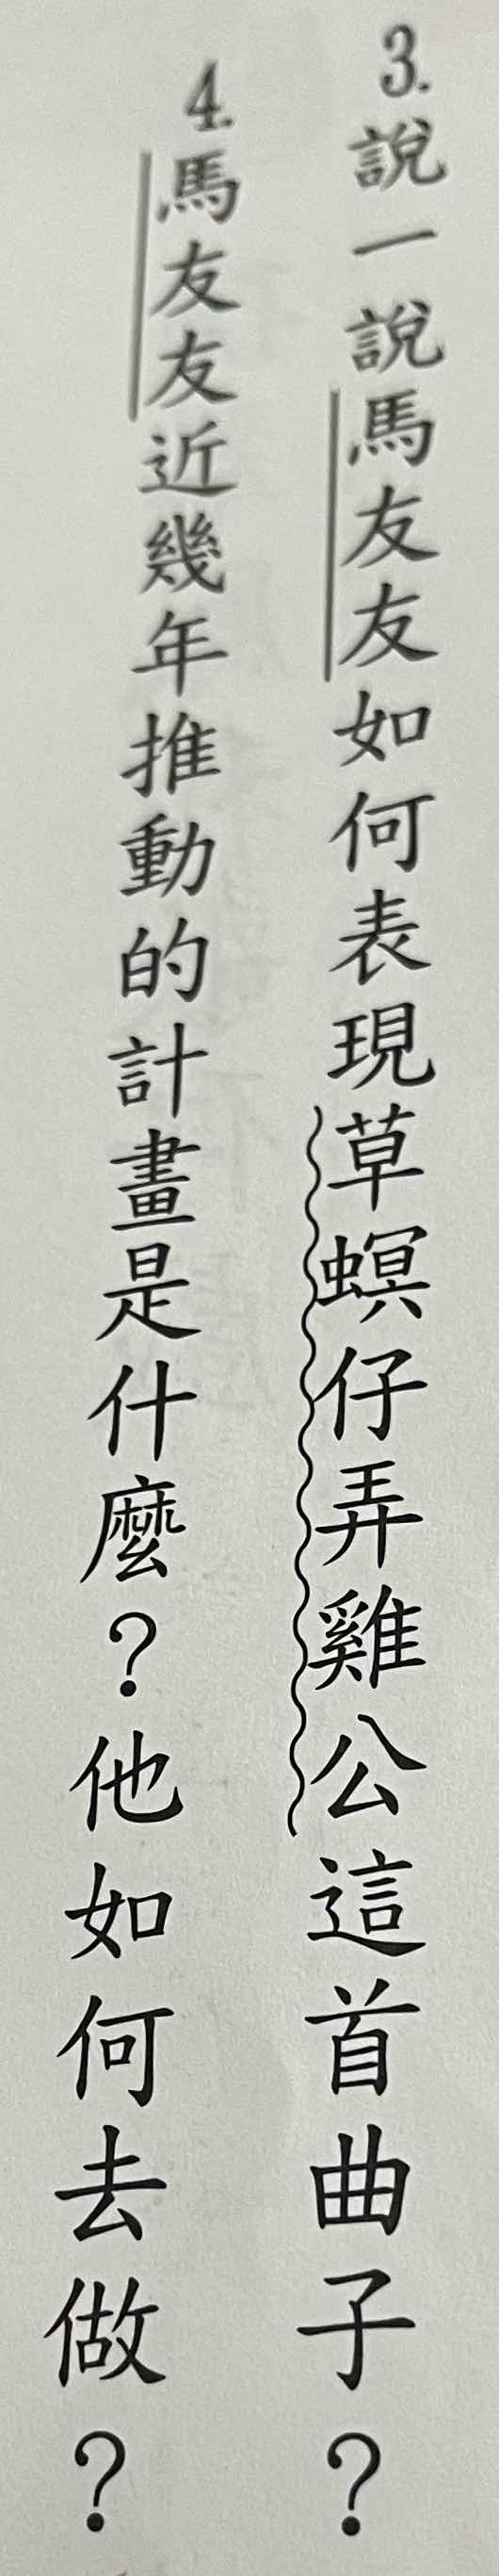 3.說一說馬友友如何表現草螟仔弄雞公這首曲子？
4.馬友友近幾年推動的計畫是什麼？他如何去做？